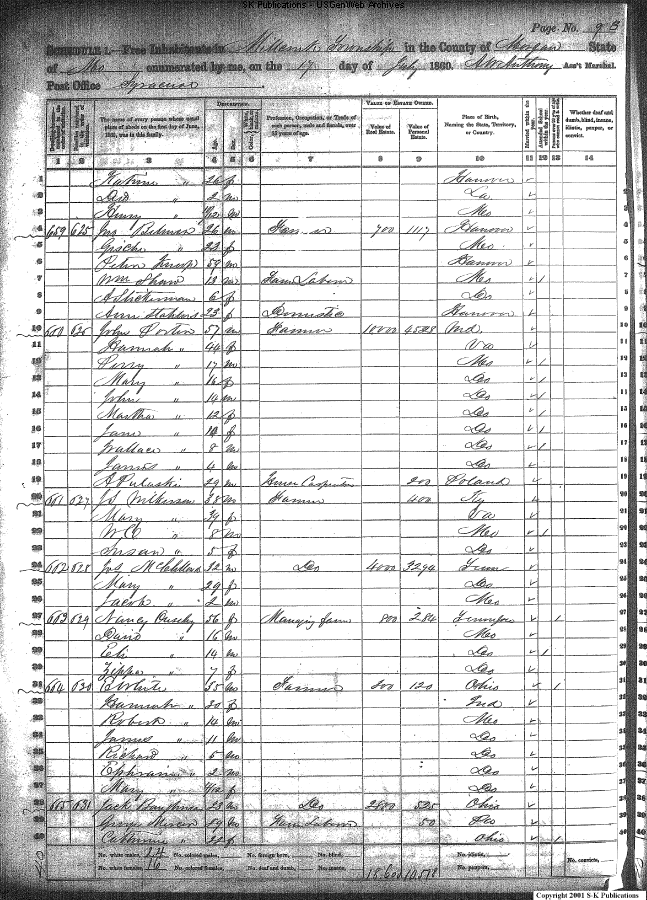 SK Publications - USGenWeb Archives
Page No. 93
SCHEDULE 1.—Free Inhabitants in Township in the County of Morgan State
of Mo enumerated by me, on the 17 day of July 1860. Ass't Marshal.
Post Office Syracuse
DESCRIPTION. VALUE OF ESTATE OWNED.
The name of every person whose usual place of abode on the first day of June, 1860, was in this family. Age. Sex. Profession, Occupation, or Trade of each person, male and female, over 15 years of age. Value of Real Estate. Value of Personal Estate. Place of Birth, Naming the State, Territory, or Country. Married within the year. Whether deaf and dumb, blind, insane, idiotic, pauper, or convict.
1 2 3 4 5 6 7 8 9 10 11 12 13 14
1 " 26 f Hanover
2 " 2 m La
3 Henry " m Mo
4 659 625 26 m Farmer 900 1117 Hanover
5 " 22 f Mo
6 Peter 59 m Hanover
7 Wm Shaw 13 m Farm Laborer Mo /
8 6 f Do
9 Ann 23 f Domestic Hanover
10 660 626 John Porter 57 m Farmer 10000 4528 Md
11 Hannah " 44 f Va
12 Perry " 17 m Mo /
13 Mary " 16 f Do /
14 John " 14 m Do /
15 Martha " 12 f Do /
16 Jane " 10 f Do /
17 Wallace " 8 m Do /
18 James " 4 m Do
19 A Pulaski 29 m House Carpenter 200 Poland
20 661 627 Js Wilkerson 38 m Farmer 400 Ky
21 Mary " f Va
22 W C " 8 m Mo /
23 Susan " 5 f Do
24 662 628 Jas McClelland 32 m Do 4000 3294 Tenn
25 Mary " 29 f Do
26 Jacob " 2 m Mo
27 663 629 Nancy 56 f Managing farm 800 284 Tennessee /
28 David " 16 m Mo
29 Eli " 14 m Do /
30 " 7 f Do
31 664 630 White 55 m Farmer 800 120 Ohio /
32 Hannah " 30 f Ind
33 Robert " 14 m Mo
34 James " 11 m Do
35 Richard " 5 m Do
36 Ephraim " 2 m Do
37 Mary " f Do
38 665 631 Jack Baughman 23 m Do 2800 525 Ohio
39 George 19 m Farm Laborer 50 Do
40 Catherine " f Ohio /
No. white males, 24 No. colored males, No. foreign born, No. blind, No. idiotic, No. convicts,
No. white females, 16 No. colored females, No. deaf and dumb, No. insane, 18,600 10,518 No. paupers,
Copyright 2001 S-K Publications